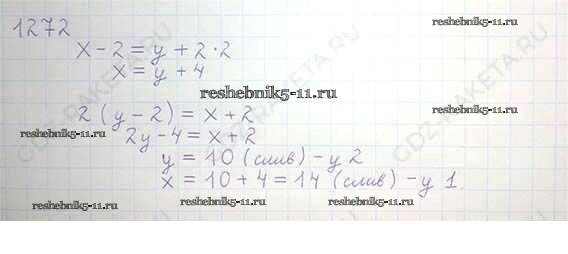 1272
reshebnik5-11.ru
x - 2 = y + 2 · 2
x = y + 4
reshebnik5-11.ru
2 (y - 2) = x + 2
reshebnik5-11.ru
reshebnik5-11.ru
2y - 4 = x + 2
y = 10 (слив) - у 2
x = 10 + 4 = 14 (слив) - у 1.
reshebnik5-11.ru
reshebnik5-11.ru
reshebnik5-11.ru
GDZ-RAKETA.RU
GDZ-RAKETA.RU